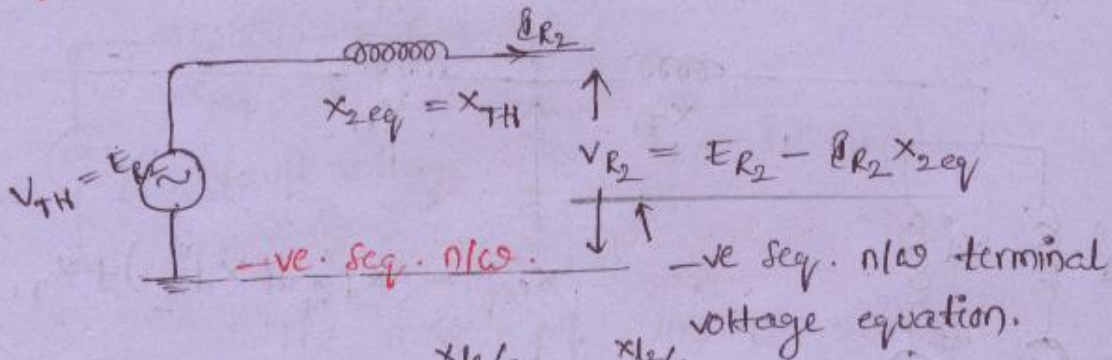 I_R2
X_2eq = X_TH
V_R2 = E_R2 - I_R2 X_2eq
V_TH = E_R2
-ve. seq. n/w.
-ve seq. n/w terminal
voltage equation.